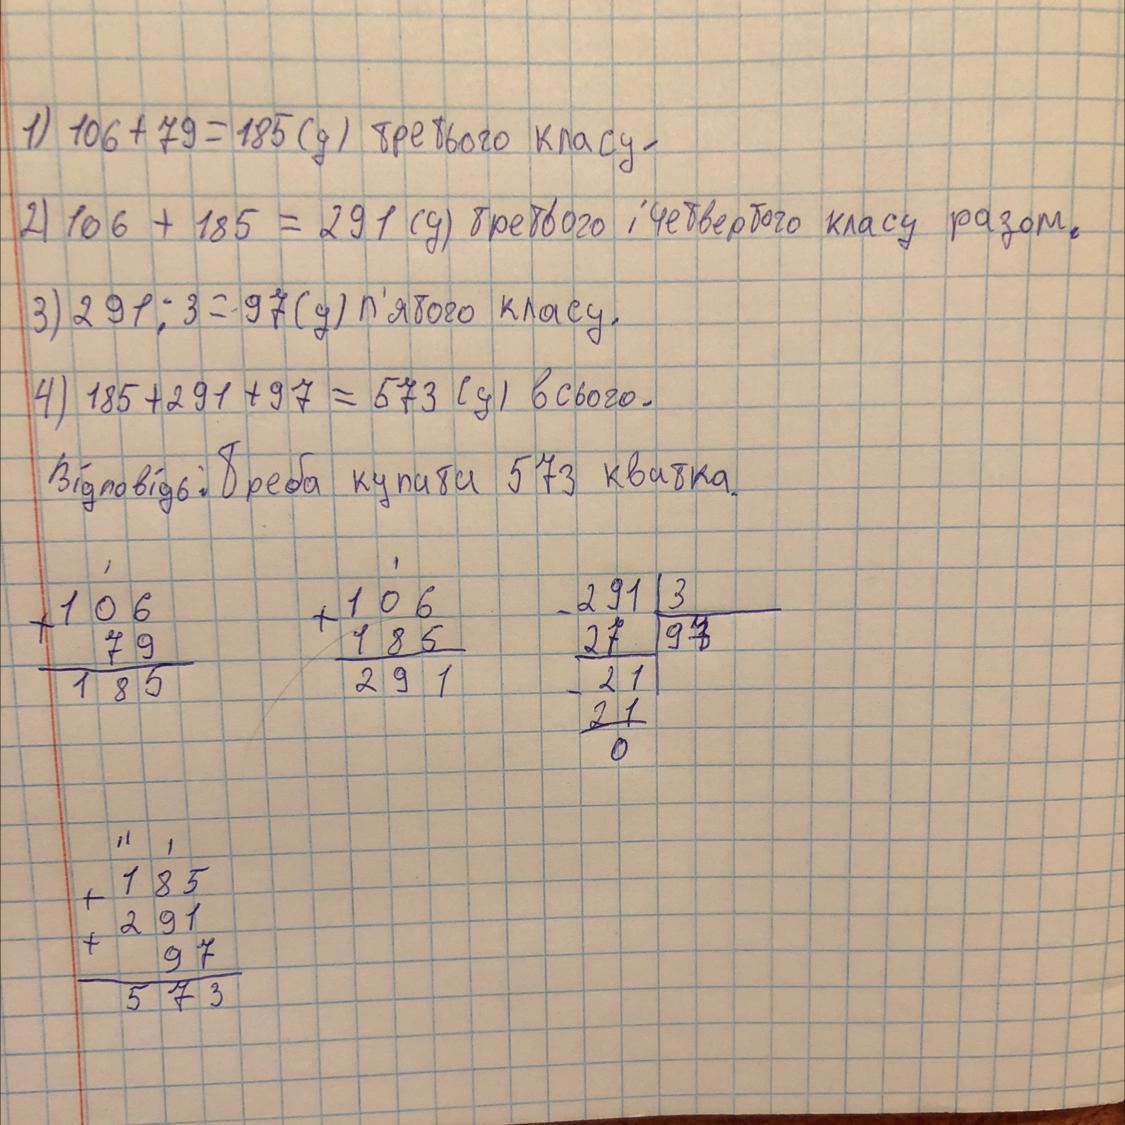 1) 106 + 79 = 185 (у) третього класу.
2) 106 + 185 = 291 (у) третього і четвертого класу разом.
3) 291 : 3 = 97 (у) п'ятого класу.
4) 185 + 291 + 97 = 573 (у) всього.
Відповідь: Треба купити 573 квитка.
+ 106
79
185
+ 106
185
291
- 291 | 3
27 | 97
- 21
21
0
+ 185
+ 291
97
573